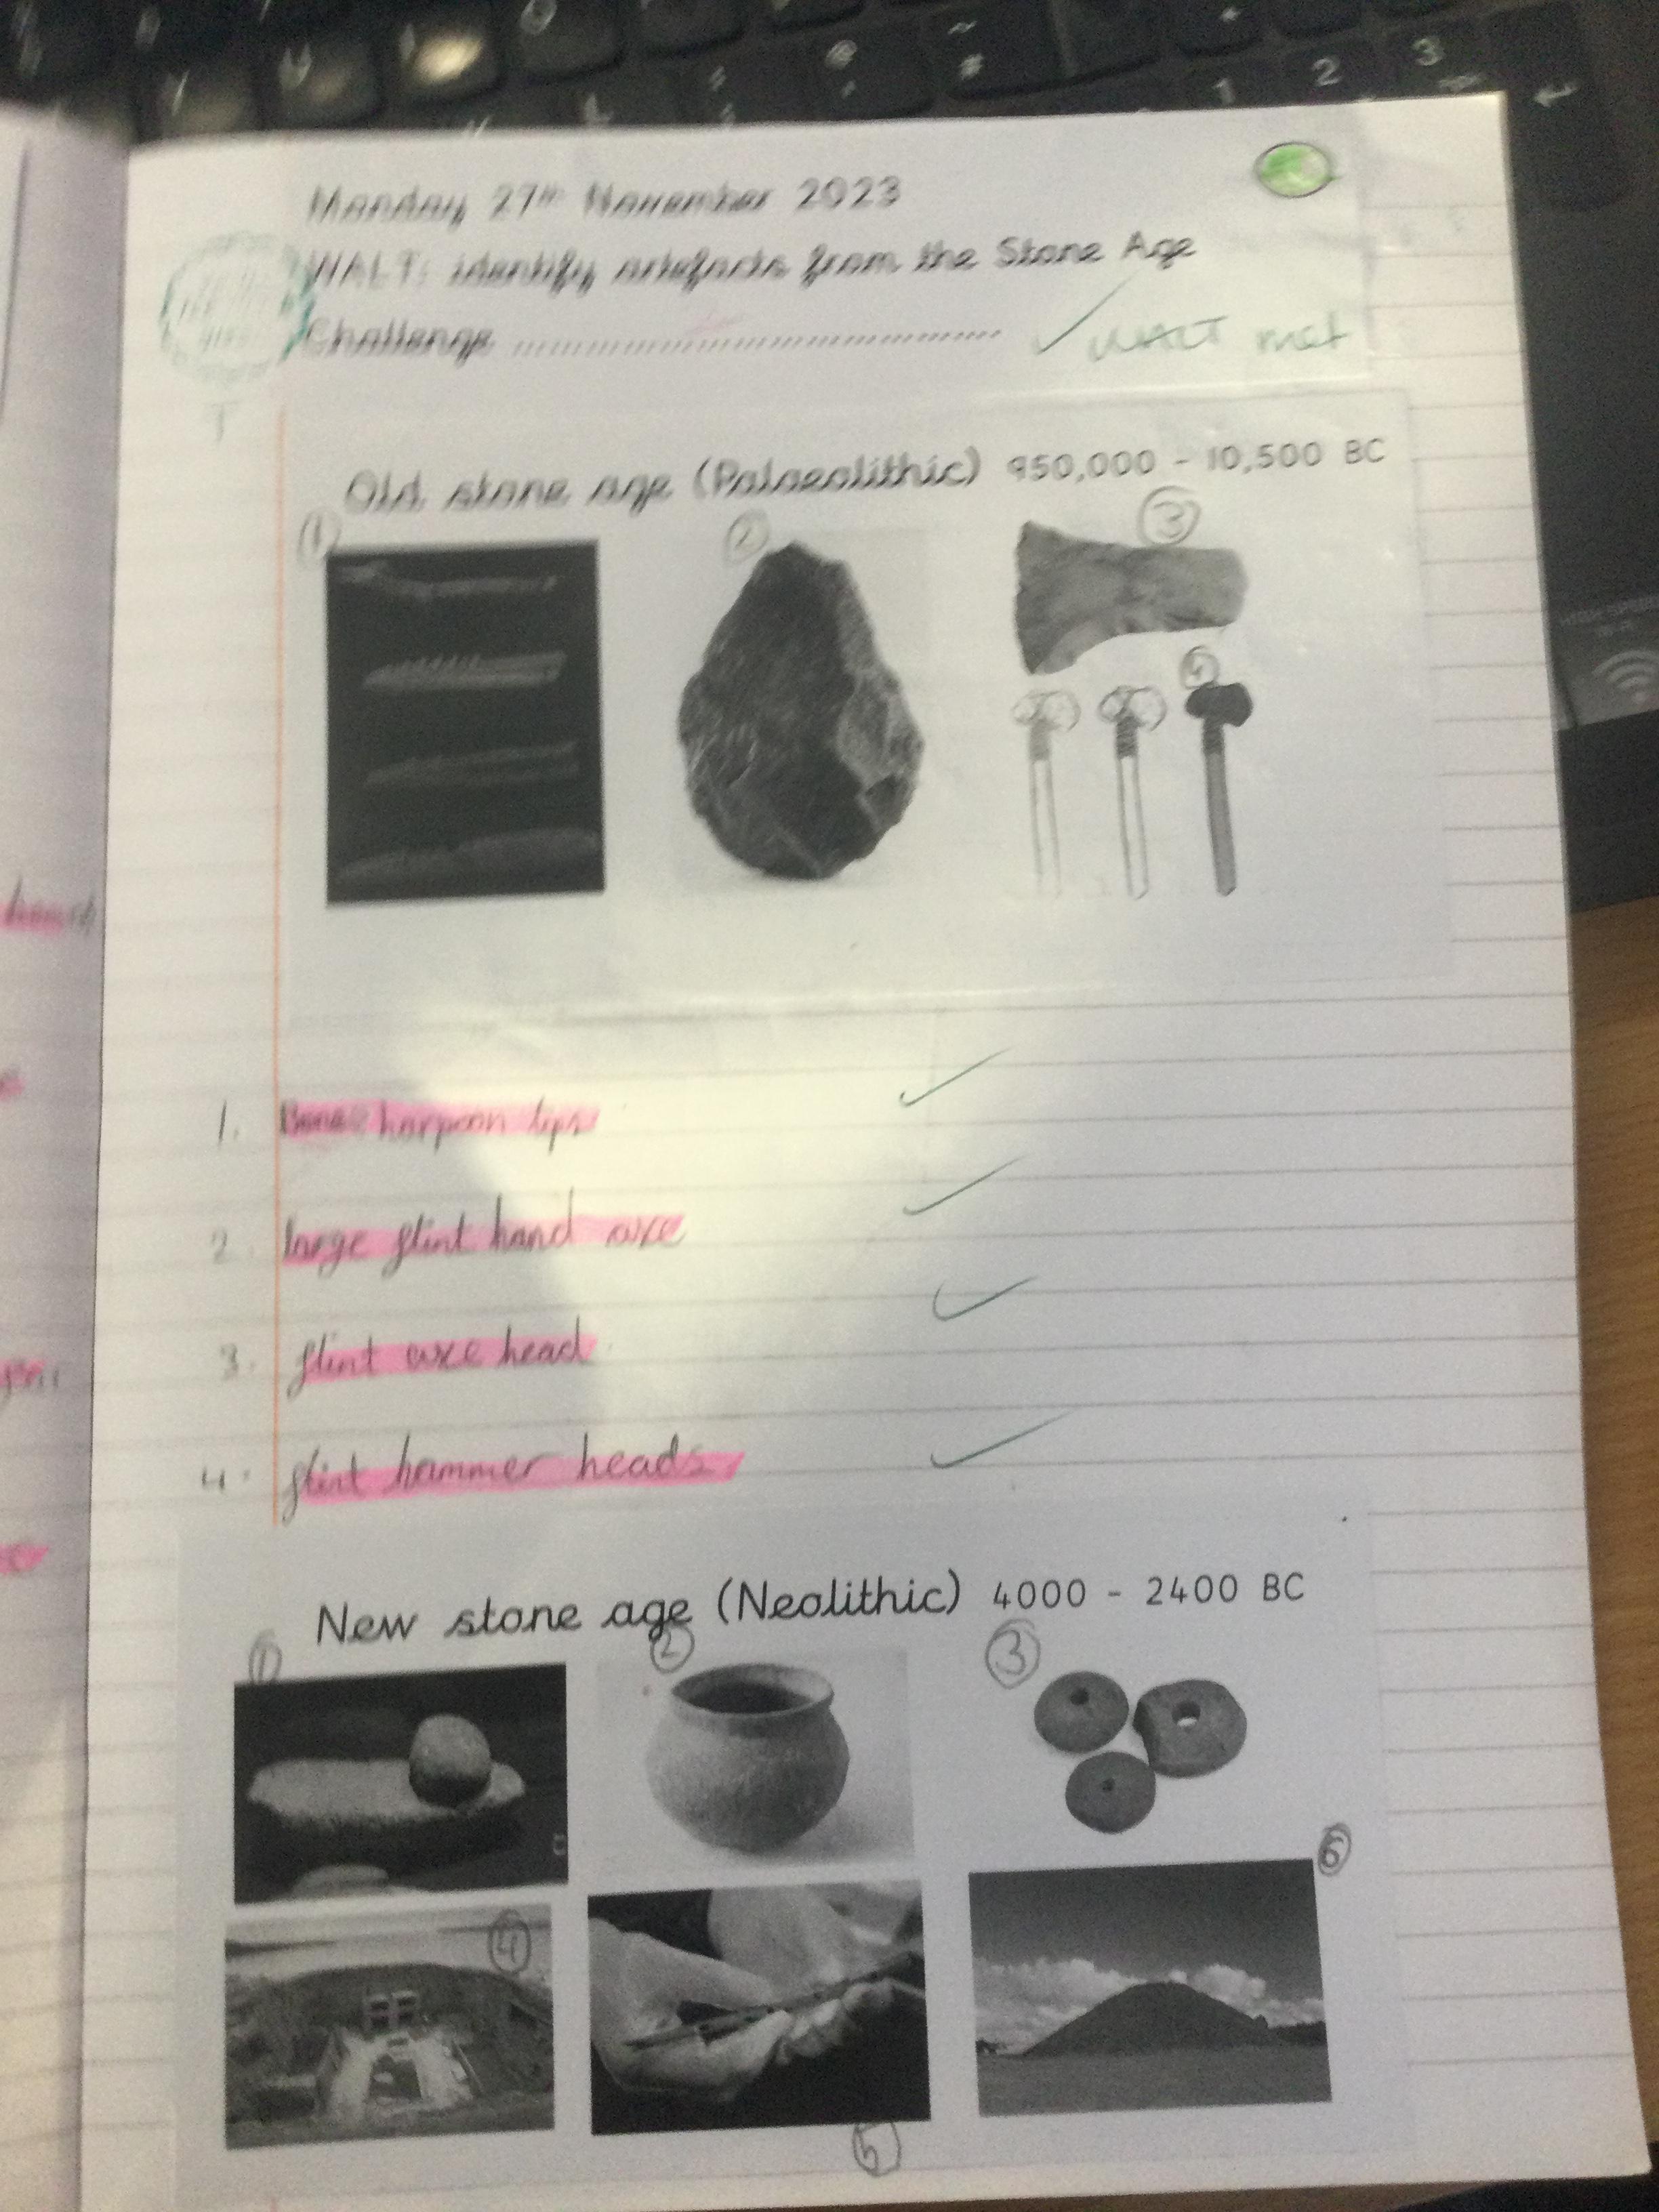 Monday 27th November 2023
WALT: identify artefacts from the Stone Age
Challenge ........................................
✓ WALT met
Old stone age (Palaeolithic) 950,000 - 10,500 BC
1 2 3
1. Bone harpoon tips ✓
2. large flint hand axe ✓
3. flint axe head ✓
4. flint hammer heads ✓
New stone age (Neolithic) 4000 - 2400 BC
1 2 3
6
4
5